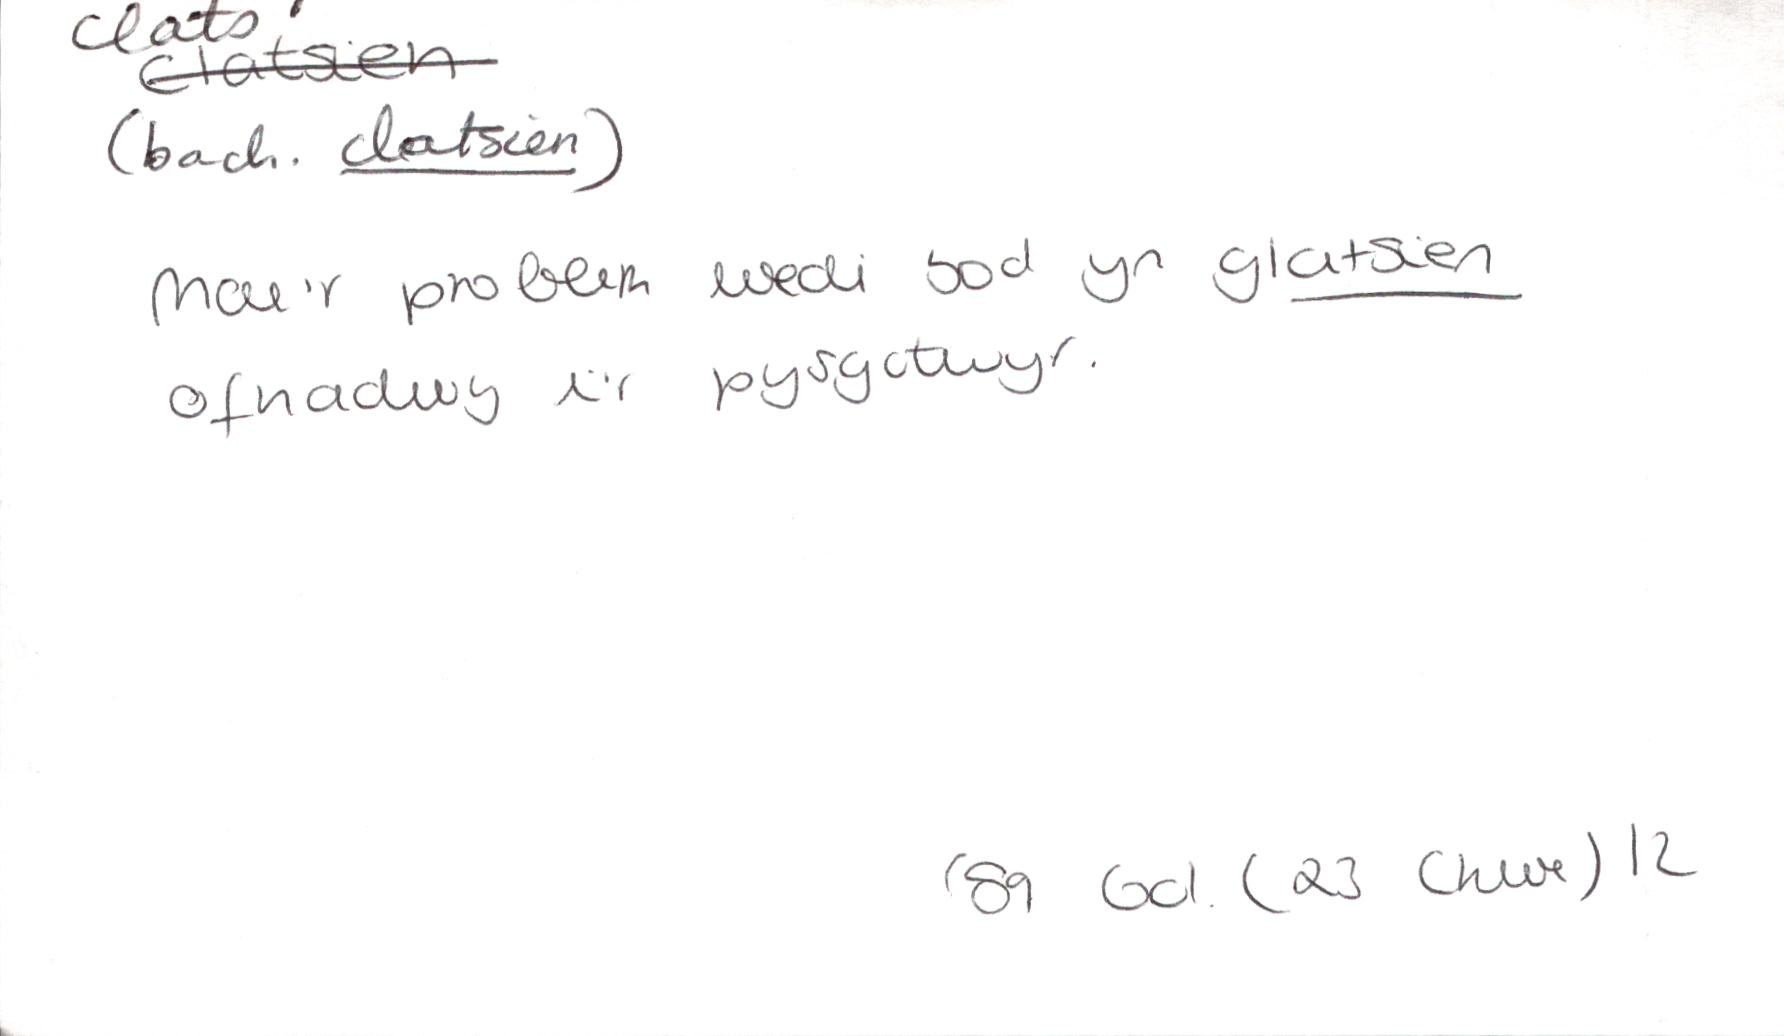 clats¹
clatsien
(bach. clatsien)
Mae'r problem wedi bod yn glatsien
ofnadwy i'r pysgotwyr.
'89 Gol. (23 Chwe) 12